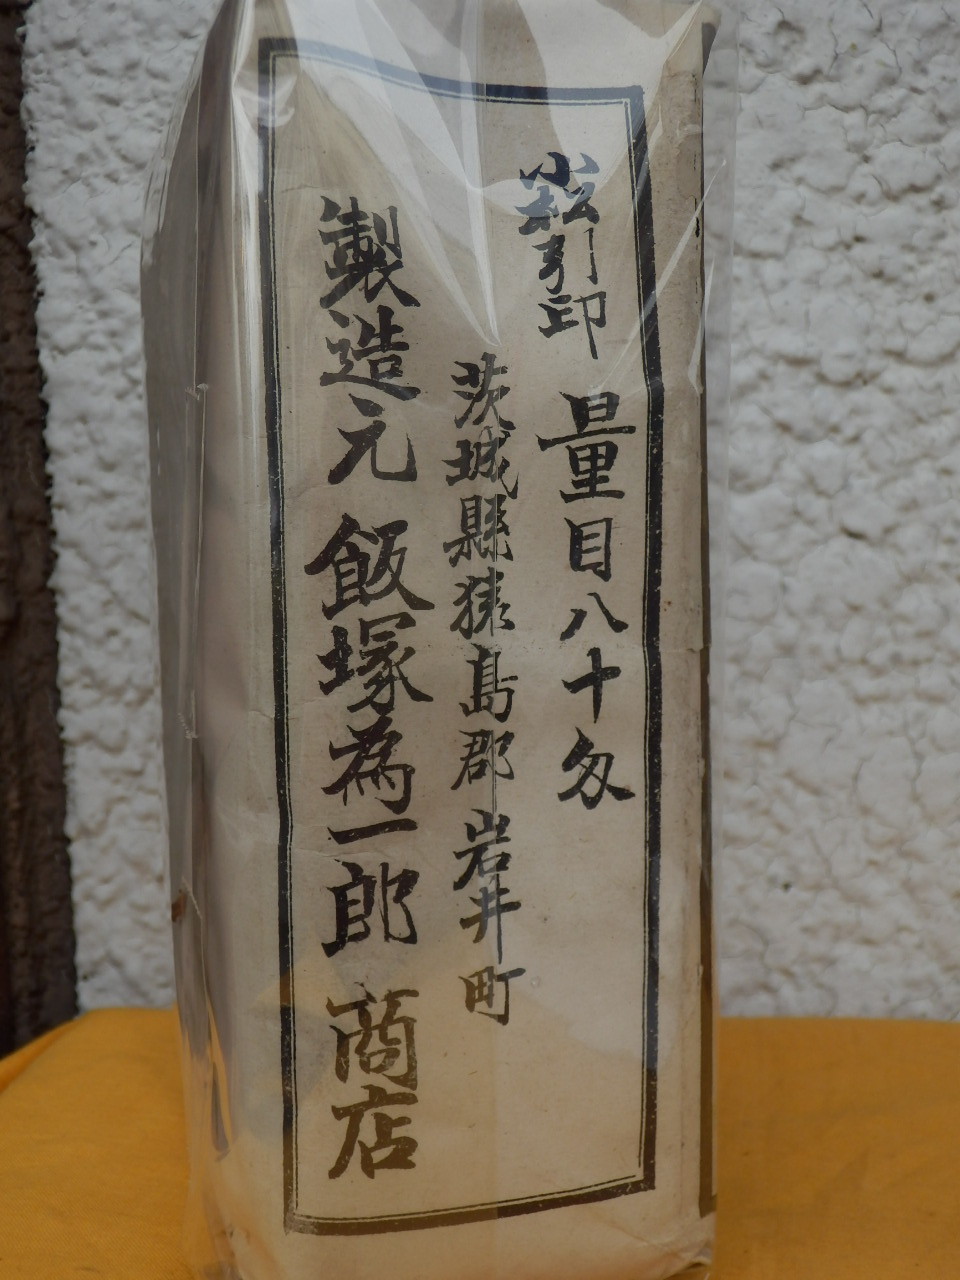 小松引印 量目八十匁
茨城縣猿島郡岩井町
製造元 飯塚為一郎 商店